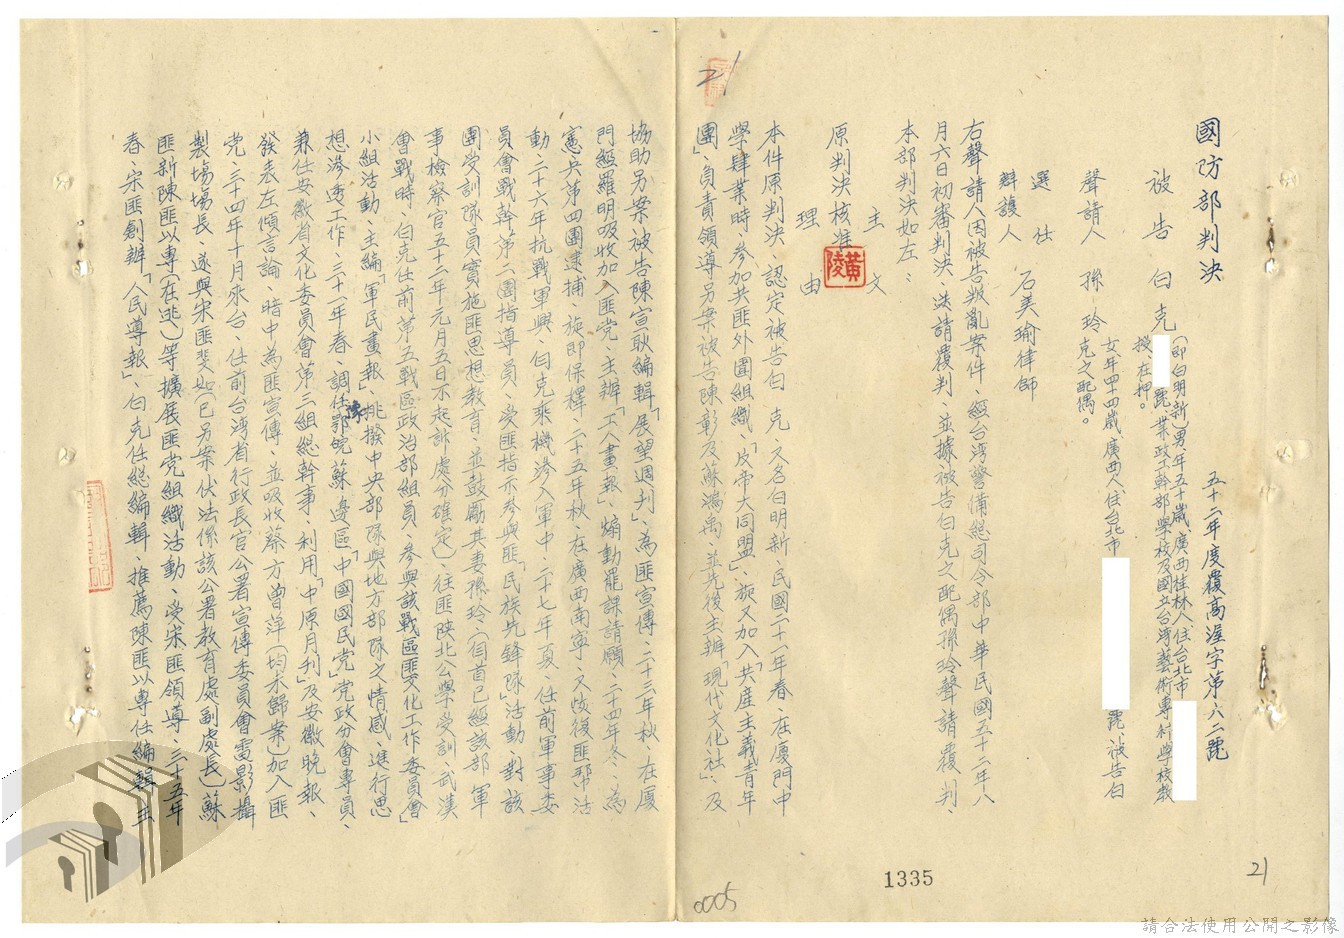 國防部判決
五十二年度覆高渥字第六二號
被告 白克 (即白明新)男、年五十歲、廣西桂林人、住台北市
號、業政工幹部學校及國立台湾藝術專科學校教
授、在押。
聲請人 孫玲 女年四十四歲、廣西人、住台北市
號、被告白
克之配偶。
選任
辯護人 石美瑜律師
右聲請人因被告叛亂案件、經台湾警備總司令部中華民國五十二年八
月六日初審判決、送請覆判、並據被告白克之配偶孫玲聲請覆判、
本部判決如左、
主文
原判決核准
黃陵
理由
本件原判決、認定被告白克、又名白明新、民國二十一年春、在厦門中
學肄業時、參加共匪外圍組織、「反帝大同盟」、旋又加入「共産主義青年
團」、負責領導另案被告陳彰及蘇鴻禹、並先後主辦「現代文化社」、及
協助另案被告陳宣耿編輯「展望週刊」、為匪宣傳、二十三年秋、在厦
門經羅明吸收加入匪党、主辦「工人畫報」、煽動罷課請願、二十四年冬、為
憲兵第四團逮捕、旋即保釋、二十五年秋、在廣西南寧、又恢復匪幫活
動、二十六年抗戰軍興、白克乘機滲入軍中、二十七年夏、任前軍事委
員會戰幹第二團指導員、受匪指示參與匪「民族先鋒隊」活動、對該
團受訓隊員實施匪思想教育、並鼓勵其妻孫玲(自首已經該部軍
事檢察官五十二年元月五日不起訴處分確定)、往匪陕北公學受訓、武漢
會戰時、白克任前第五戰區政治部組員、參與該戰區匪文化工作委員會」
小組活動、主編「軍民畫報」、挑撥中央部隊與地方部隊之情感、進行思
想滲透工作、三十一年春、調任豫鄂皖蘇邊區「中國國民党」党政分會專員、
兼任安徽省文化委員會第三組總幹事、利用「中原月刊」及安徽晚報、
發表左傾言論、暗中為匪宣傳、並吸收蔡一方曾萍(均未歸案)加入匪
党、三十四年十月來台、任前台湾省行政長官公署宣傳委員會電影攝
製場場長、遂與宋匪斐如(已另案伏法係該公署教育處副處長)蘇
匪新陳匪以專(在逃)等擴展匪党組織活動、受宋匪領導、三十五年
春、宋匪創辦「人民導報」、白克任總編輯、推薦陳匪以專任編輯主
21
21
1335
0005
請合法使用公開之影像